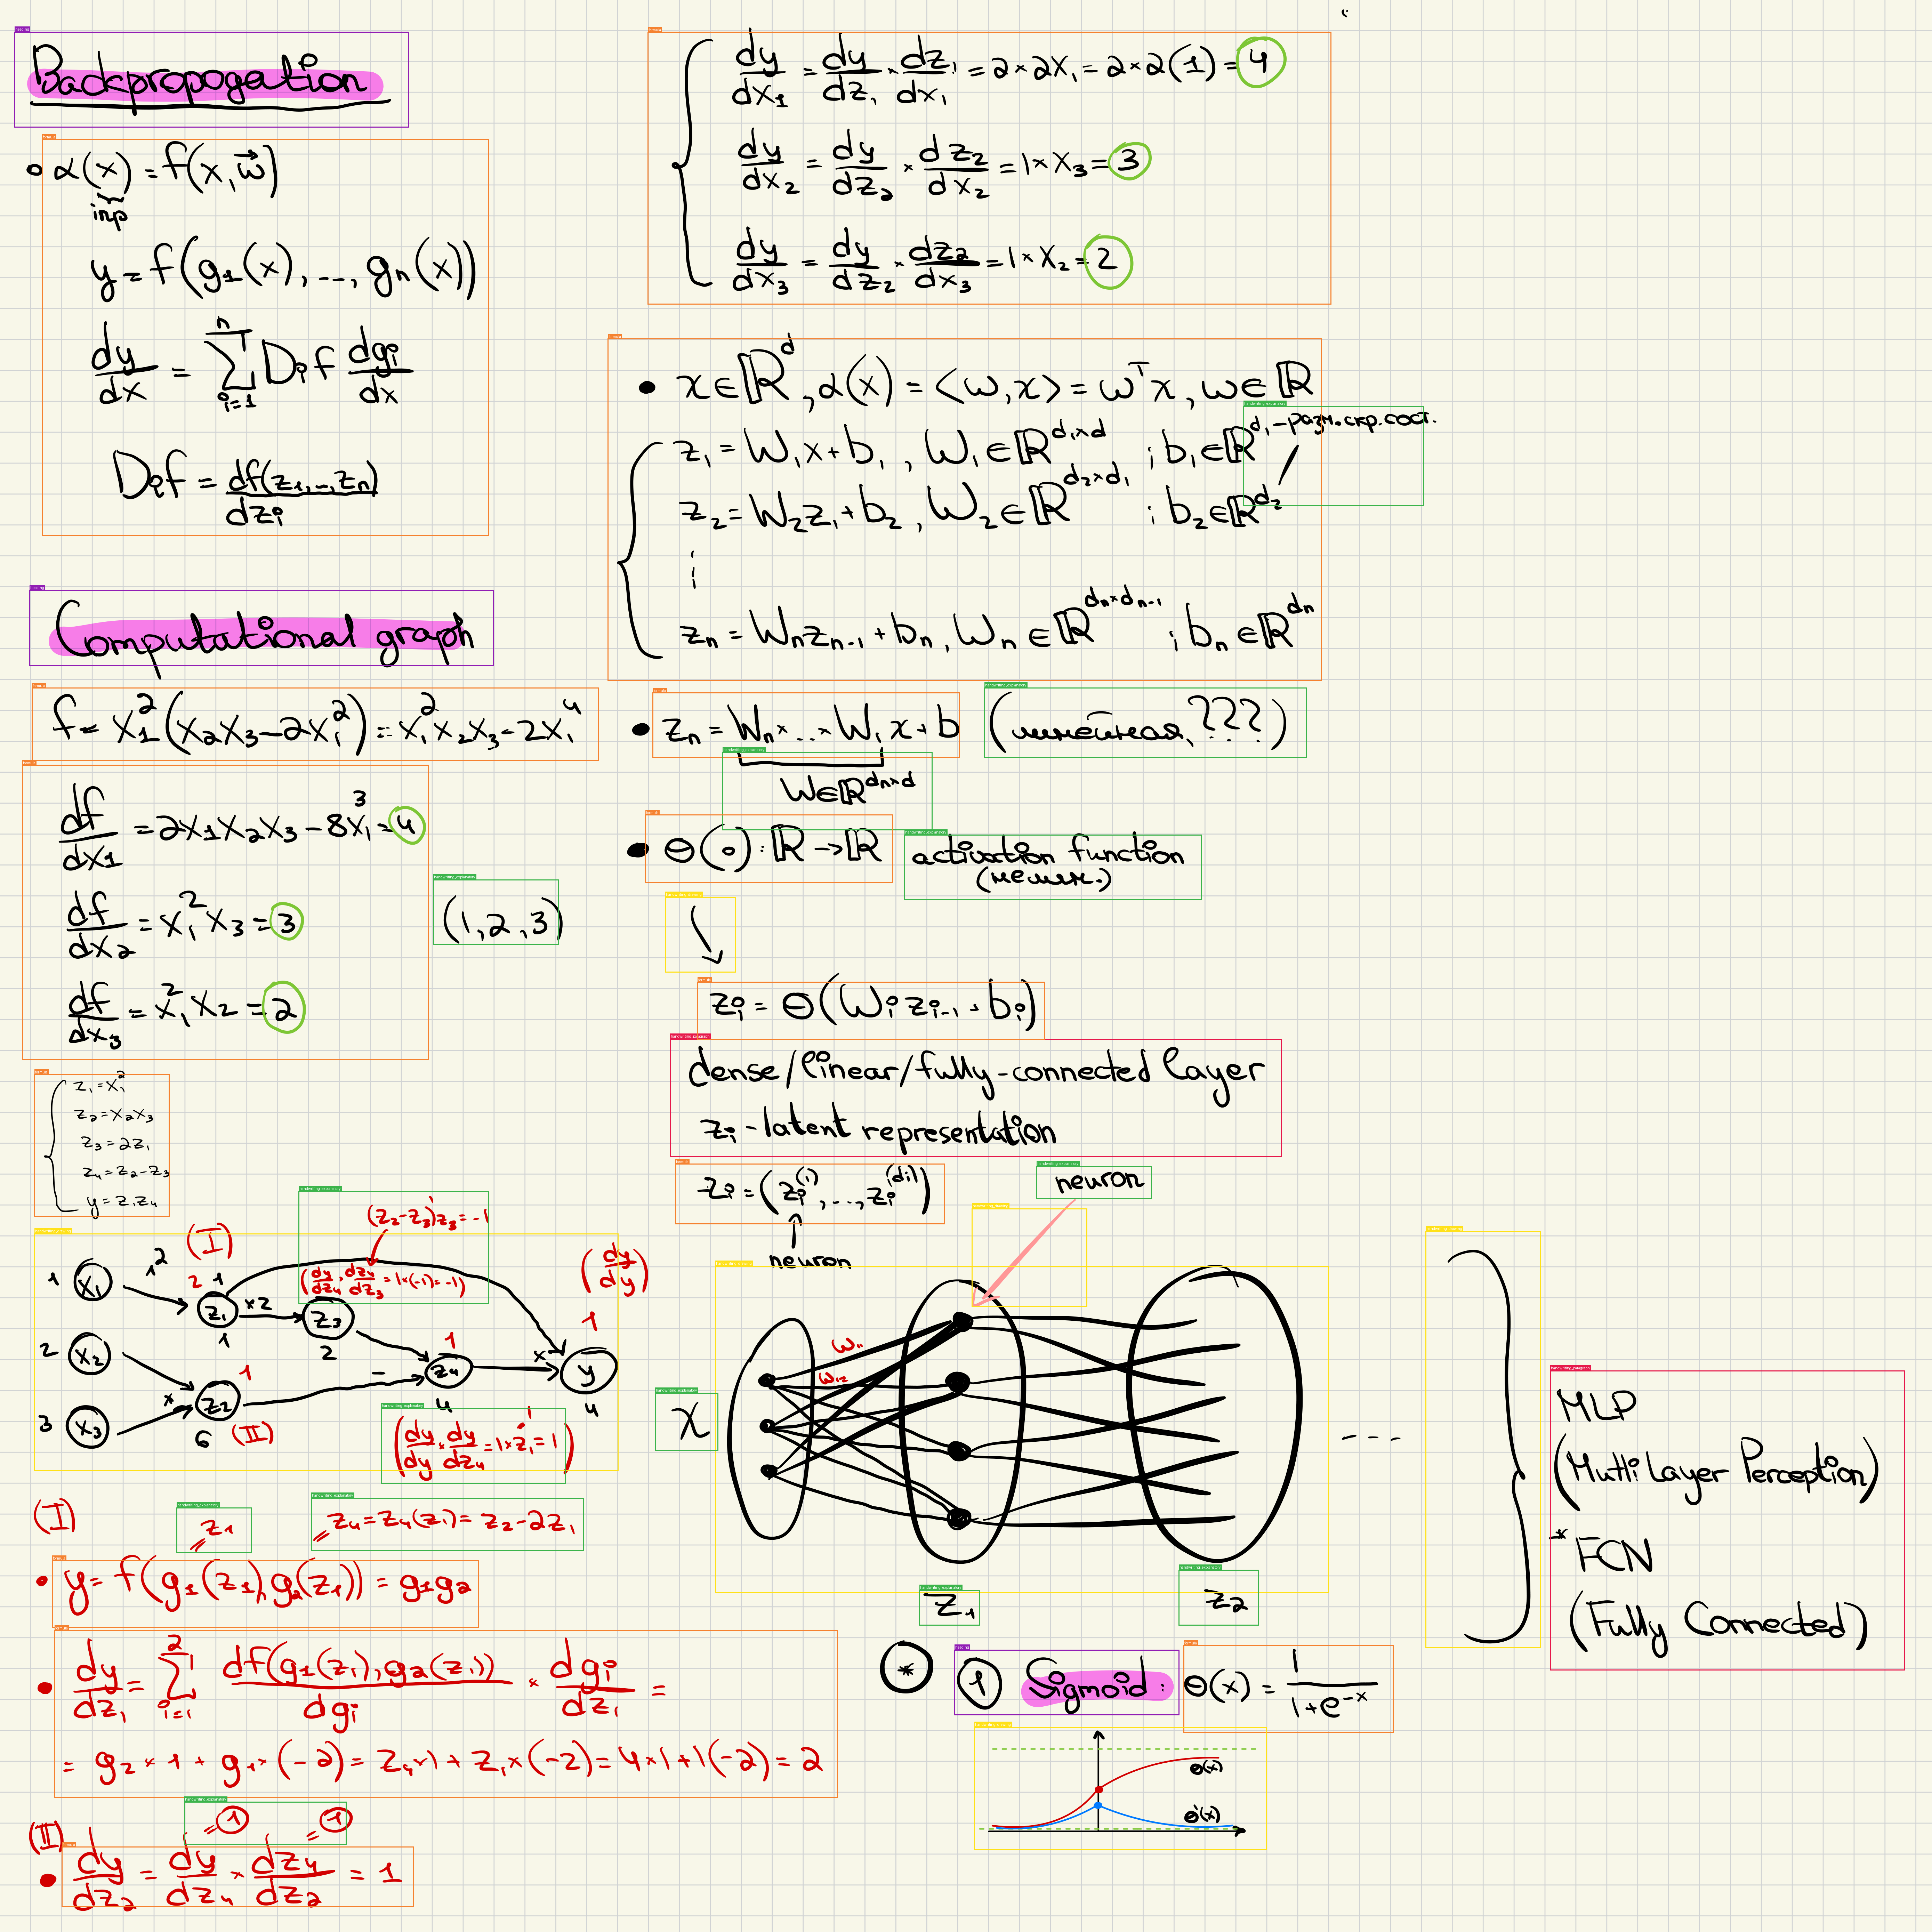 Backpropogation
α(x) = f(x, w⃗)
inp
y = f(g₁(x), ..., gₙ(x))
dy/dx = Σᵢ₌₁ⁿ Dᵢf dgᵢ/dx
Dᵢf = df(z₁,...,zₙ)/dzᵢ
Computational graph
f = x₁²(x₂x₃ − 2x₁²) = x₁²x₂x₃ − 2x₁⁴
df/dx₁ = 2x₁x₂x₃ − 8x₁³ = 4
df/dx₂ = x₁²x₃ = 3
(1, 2, 3)
df/dx₃ = x₁²x₂ = 2
z₁ = x₁²
z₂ = x₂x₃
z₃ = 2z₁
z₄ = z₂ − z₃
y = z₁z₄
(z₂ − z₃)'z₃ = −1
(dy/dz₄ × dz₄/dz₃ = 1×(−1) = −1)
(dy/dy)
(I)
1 x₁ 1² 2 1 z₁ 1 ×2 z₃ 2
2 x₂
3 x₃ × z₂ 1 6 (II)
− z₄ 1 4 × y 1 4
(dy/dy × dy/dz₄ = 1 × z₁ = 1)
1
(I)
= z₁
= z₄ = z₄(z₁) = z₂ − 2z₁
y = f(g₁(z₁), g₂(z₁)) = g₁g₂
dy/dz₁ = Σᵢ₌₁² df(g₁(z₁), g₂(z₁))/dgᵢ × dgᵢ/dz₁ =
= g₂ × 1 + g₁ × (−2) = z₄×1 + z₁×(−2) = 4×1 + 1(−2) = 2
(II)
= 1 = 1
dy/dz₂ = dy/dz₄ × dz₄/dz₂ = 1
dy/dx₁ = dy/dz₁ × dz₁/dx₁ = 2 × 2x₁ = 2 × 2(1) = 4
dy/dx₂ = dy/dz₂ × dz₂/dx₂ = 1 × x₃ = 3
dy/dx₃ = dy/dz₂ × dz₂/dx₃ = 1 × x₂ = 2
x ∈ ℝᵈ, α(x) = <w, x> = wᵀx, w ∈ ℝ
z₁ = W₁x + b₁, W₁ ∈ ℝ^(d₁×d) ; b₁ ∈ ℝ^d₁ – разм. скр. сост.
z₂ = W₂z₁ + b₂, W₂ ∈ ℝ^(d₂×d₁) ; b₂ ∈ ℝ^d₂
⋮
zₙ = Wₙzₙ₋₁ + bₙ, Wₙ ∈ ℝ^(dₙ×dₙ₋₁) ; bₙ ∈ ℝ^dₙ
zₙ = Wₙ × ... × W₁ x + b (линейная, ???)
W ∈ ℝ^(dₙ×d)
Θ(∘) : ℝ → ℝ activation function
(нелин.)
zᵢ = Θ(Wᵢzᵢ₋₁ + bᵢ)
dense/linear/fully-connected layer
zᵢ - latent representation
zᵢ = (zᵢ⁽¹⁾, ..., zᵢ^(dᵢ))
neuron
neuron
w₁₁
w₁₂
x
z₁
z₂
- - -
MLP
(Mutli Layer Perception)
* FCN
(Fully Connected)
* 1 Sigmoid: Θ(x) = 1/(1+e⁻ˣ)
Θ(x)
Θ'(x)